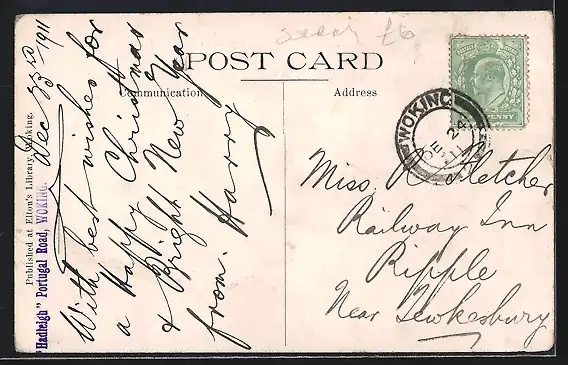 POST CARD
Communication
Address
Published at Elton's Library, Woking.
"Hadleigh" Portugal Road, WOKING.
Dec 23rd 1911
With best wishes for
a Happy Christmas
& Bright New Year
from. Harry
WOKING
DE 24
11
PENNY
Miss Fletcher
Railway Inn
Ripple
Near Tewkesbury
£6